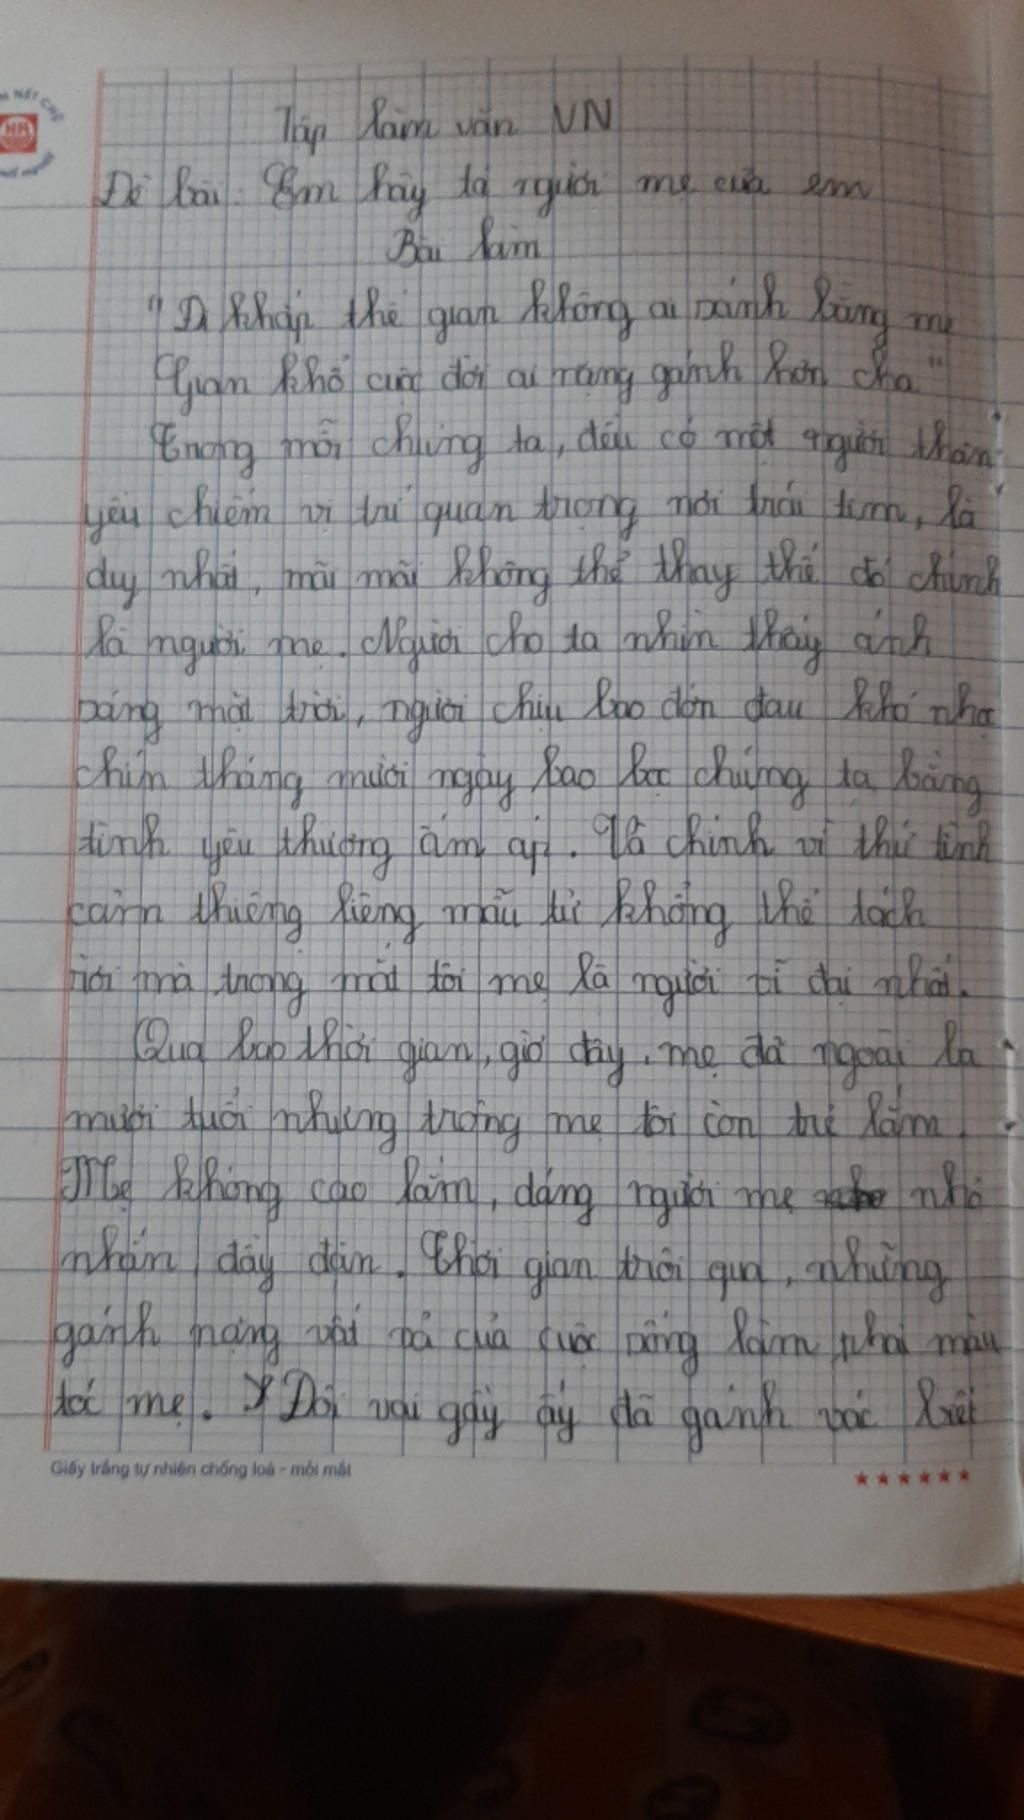 Tập làm văn VN
Đề bài: Em hãy tả người mẹ của em
Bài làm
"Đi khắp thế gian không ai sánh bằng mẹ
Gian khổ cuộc đời ai nặng gánh hơn cha"
Trong mỗi chúng ta, đều có một người thân
yêu chiếm vị trí quan trọng nơi trái tim, là
duy nhất, mãi mãi không thể thay thế đó chính
là người mẹ. Người cho ta nhìn thấy ánh
sáng mặt trời, người chịu bao đớn đau khó nhọc
chín tháng mười ngày bao bọc chúng ta bằng
tình yêu thương ấm áp. Và chính vì thứ tình
cảm thiêng liêng mẫu tử không thể tách
rời mà trong mắt tôi mẹ là người vĩ đại nhất.
Qua bao thời gian, giờ đây, mẹ đã ngoài ba
mươi tuổi nhưng trông mẹ tôi còn trẻ lắm.
Mẹ không cao lắm, dáng người mẹ nhỏ
nhắn, đầy đặn. Thời gian trôi qua, những
gánh nặng vất vả của cuộc sống làm phai màu
tóc mẹ. Đôi vai gầy ấy đã gánh vác biết
Giấy trắng tự nhiên chống loá - mỏi mắt